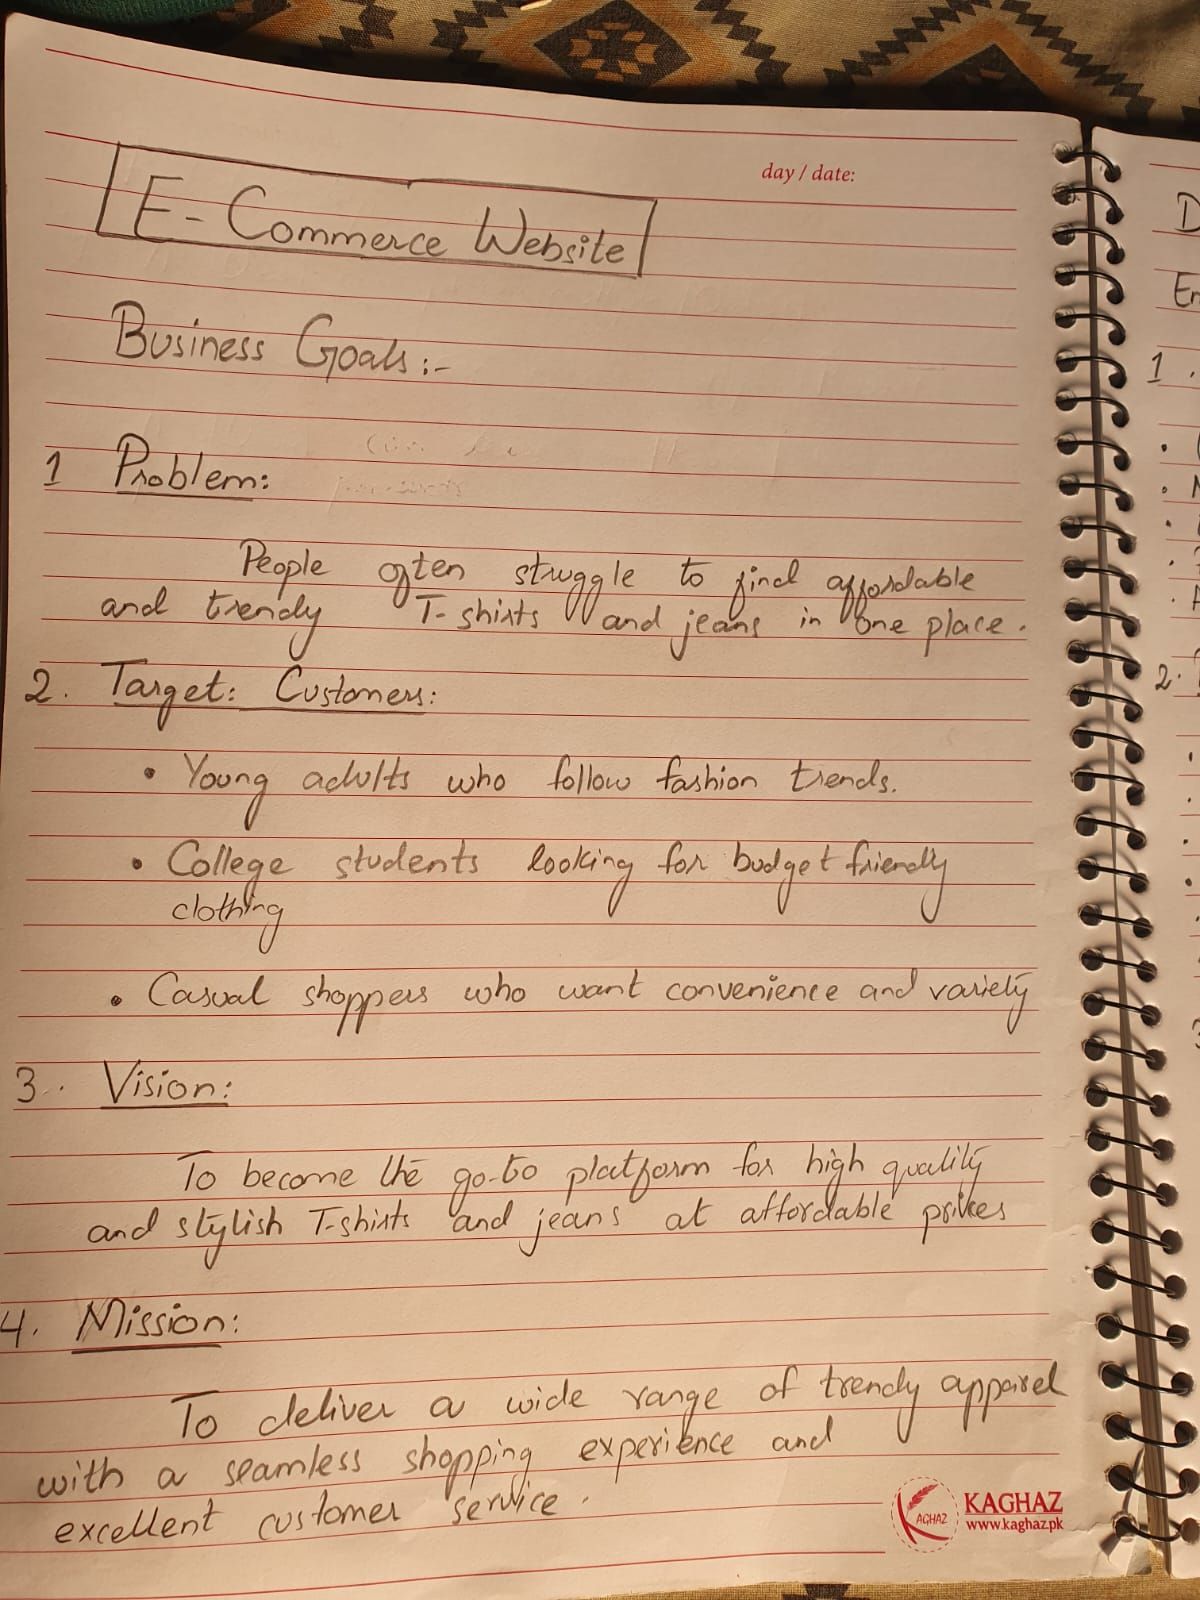 day / date:
E- Commerce Website
Business Goals:-
1 Problem:
People often struggle to find affordable
and trendy T-shirts and jeans in one place.
2. Target: Customers:
• Young adults who follow fashion trends.
• College students looking for budget friendly
clothing
• Casual shoppers who want convenience and variety
3. Vision:
To become the go-to platform for high quality
and stylish T-shirts and jeans at affordable prices
4. Mission:
To deliver a wide range of trendy apparel
with a seamless shopping experience and
excellent customer service.
KAGHAZ
KAGHAZ
www.kaghaz.pk
D
En
1.
2.
3